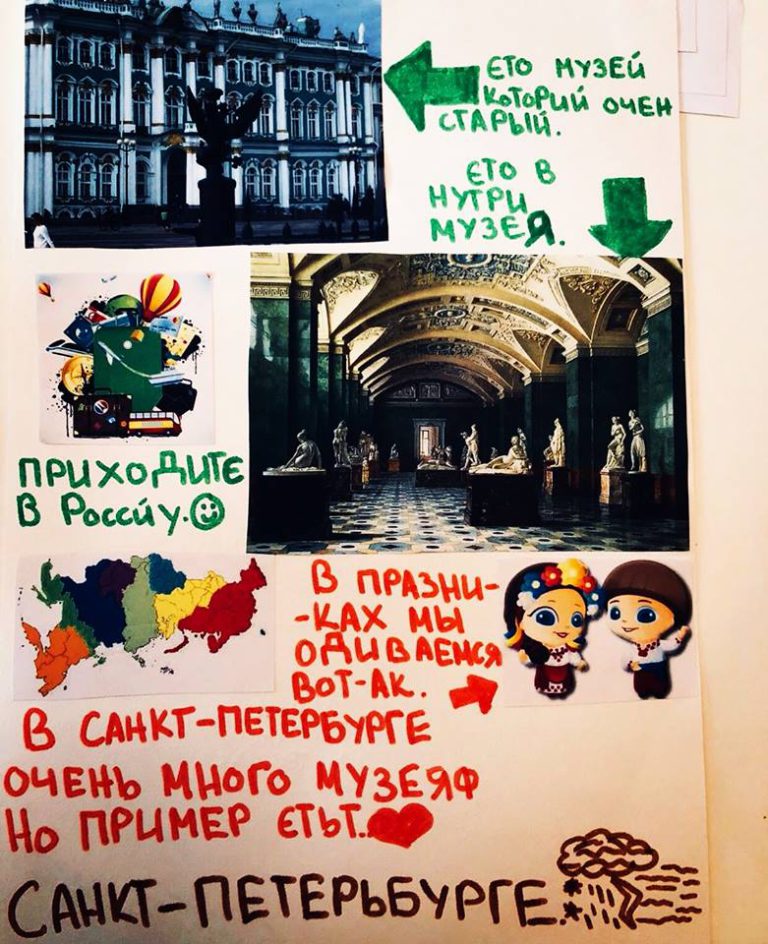 ЄТО МУЗЕЙ
КОТОРИЙ ОЧЕН
СТАРЫЙ.
ЄТО В
НУТРИ
МУЗЕЯ.
ПРИХОДИТЕ
В РОССИЙУ.
В ПРАЗНИ-
-КАХ МЫ
ОДИВАЕМСЯ
ВОТ-АК.
В САНКТ-ПЕТЕРБУРГЕ
ОЧЕНЬ МНОГО МУЗЕЯФ
НО ПРИМЕР ЄТЬТ..
САНКТ-ПЕТЕРЬБУРГЕ.